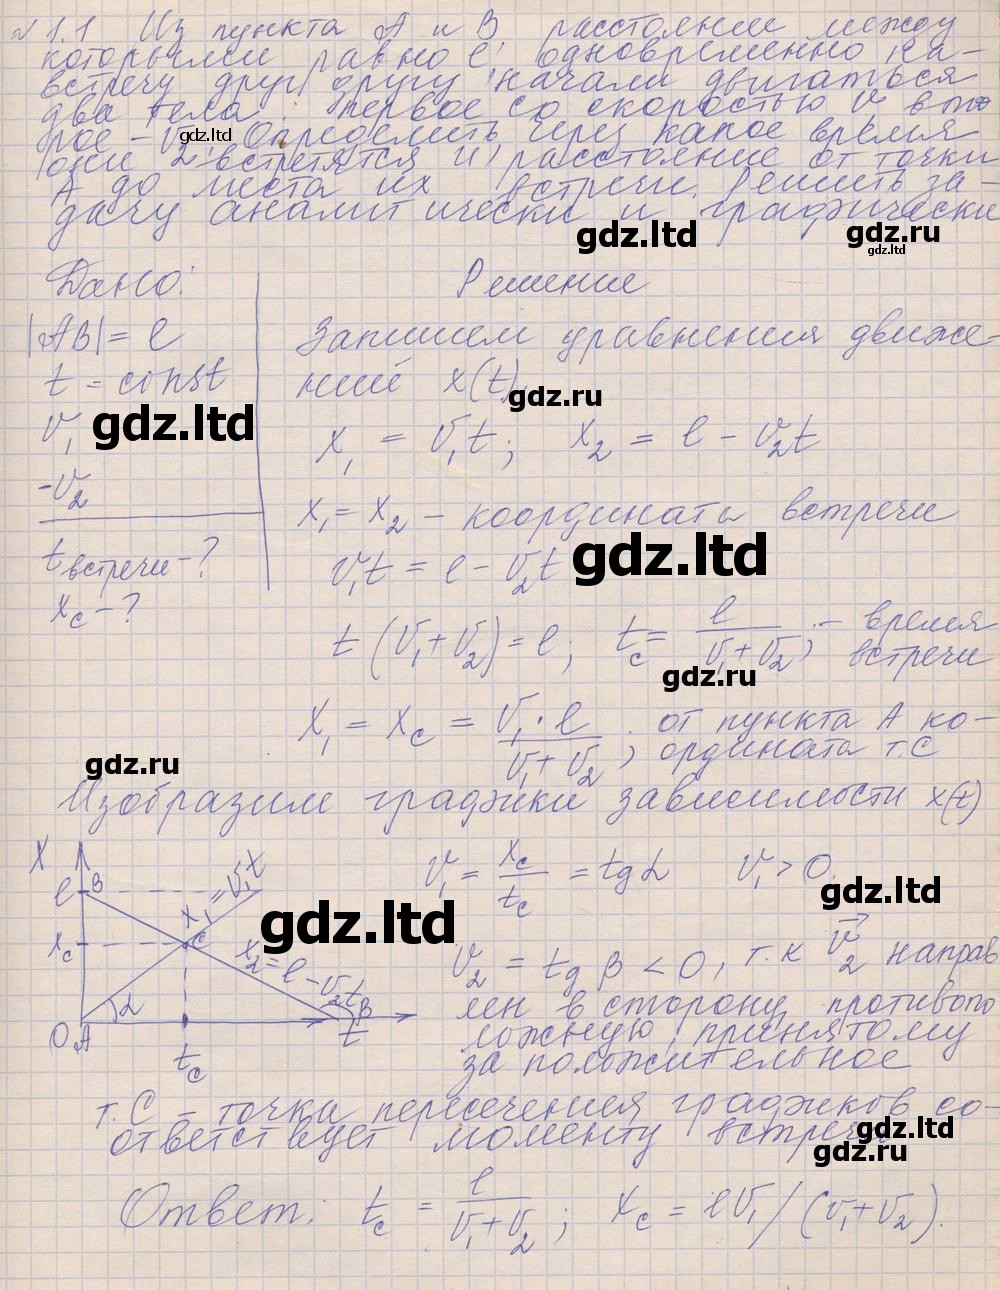 № 1.1 Из пункта А и В расстояние между
которыми равно l, одновременно на-
встречу друг другу начали двигаться
два тела: первое со скоростью v вто-
рое - v2. Определить через какое время
gdz.ltd
они встретятся и расстояние от точки
А до места их встречи. Решить за-
дачу аналитически и графически
gdz.ltd
gdz.ru
gdz.ltd
Дано: Решение
|АВ| = l Запишем уравнения движе-
t = const ний x(t)
gdz.ru
v1 gdz.ltd x1 = v1t; x2 = l - v2t
-v2
x1 = x2 - координата встречи
tвстречи - ? v1t = l - v2t gdz.ltd
xc - ?
t(v1 + v2) = l; tc = l/(v1 + v2); - время
встречи
gdz.ru
x1 = xc = v1·l/(v1 + v2), от пункта А ко-
ордината т.С
gdz.ru
Изобразим графики зависимости x(t)
X
l B x1 = v1t v1 = xc/tc = tgα v1 > 0.
gdz.ltd
gdz.ltd
xc C x2 = l - v2t v2 = tg β < 0, т.к v2 направ
лен в сторону противопо
α β
O A t ложную, принятому
tc за положительное
т. С - точка пересечения графиков со-
ответствует моменту встречи
gdz.ltd
gdz.ru
Ответ: tc = l/(v1 + v2); xc = lv1/(v1 + v2).